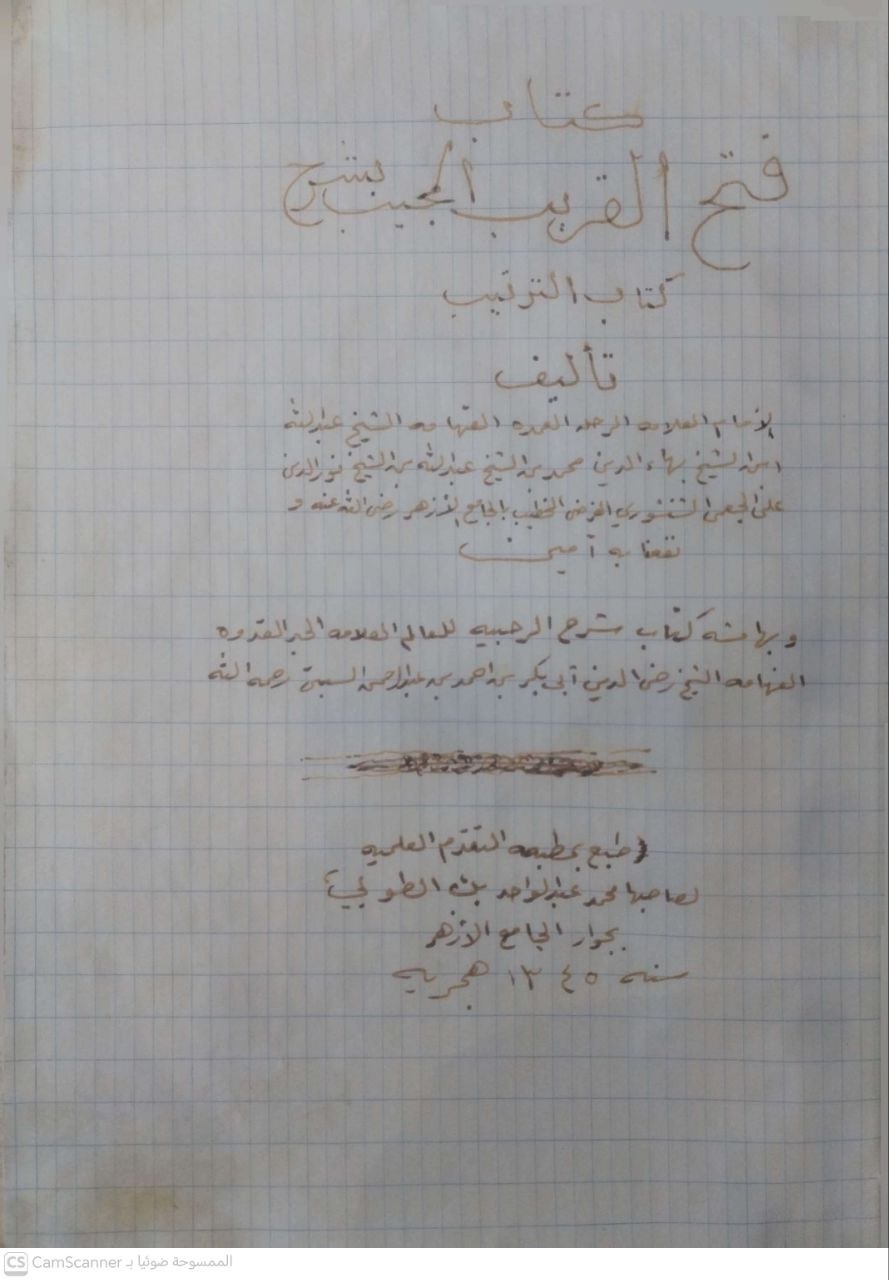 كتاب
فتح القريب المجيب بشرح
كتاب الترتيب
تأليف
الإمام العلامه الرحله العمده الفهامه الشيخ عبدالله
ابن الشيخ بهاء الدين محمد بن الشيخ عبدالله بن الشيخ نور الدين
علي العجمى الشنشوري الفرضى الخطيب بالجامع الأزهر رضى الله عنه و
نفعنا به آمين
وبهامشه كتاب شرح الرحبيه للعالم العلامه الحبر القدوه
الفهامه الشيخ رضى الدين أبى بكر بن احمد بن عبدالرحمن السبتى رحمه الله
(طبع بمطبعه التقدم العلميه
لصاحبها محمد عبدالواحد بك الطوبي)
بجوار الجامع الازهر
سنه ١٣٤٥ هجريه
CamScanner الممسوحة ضوئيا بـ